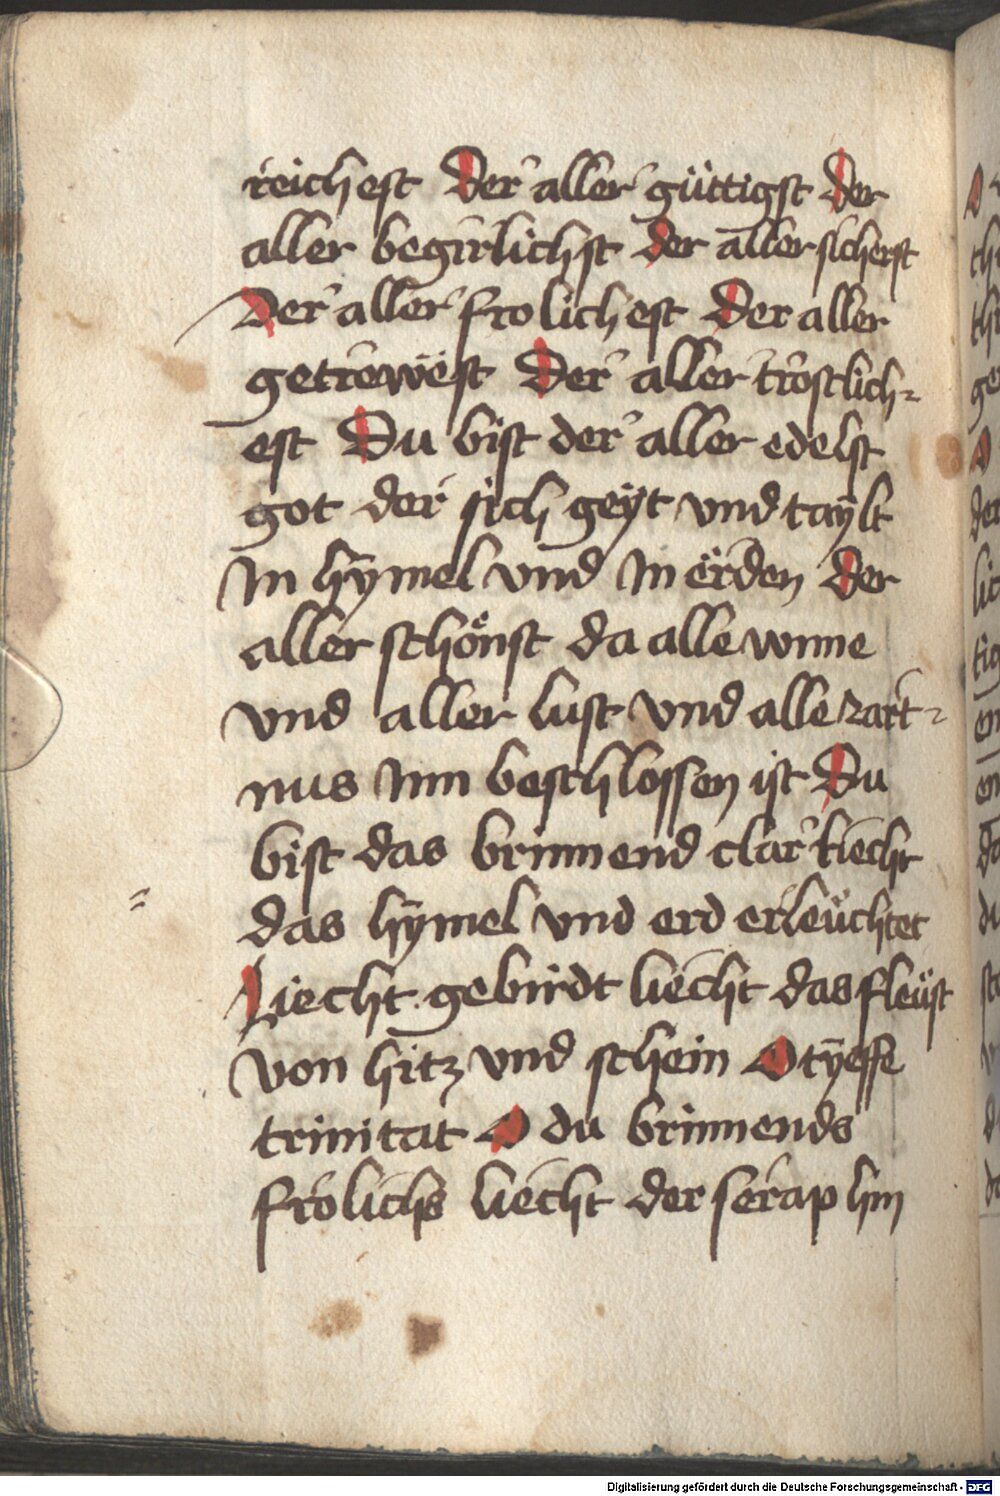 reichest Der aller güttigst Der
aller begirlichst der aller sicherst
Der aller frolichest Der aller
getrewëst Der aller trostlich-
est Du bist der aller edelst
got der sich geÿt vnd taÿlt
In hÿmel vnd In erden Der
aller schönst da alle wnne
vnd aller lust vnd alle zart-
nus Inn beschlossen ist Du
bist das brinnend clar liecht
das hÿmel vnd erd erleüchtet
Liecht gebirdt liecht das fleüst
von hitz vnd schein O tÿeffe
trinitat O du brinnends
frolichs liecht der seraphin
Digitalisierung gefördert durch die Deutsche Forschungsgemeinschaft - DFG